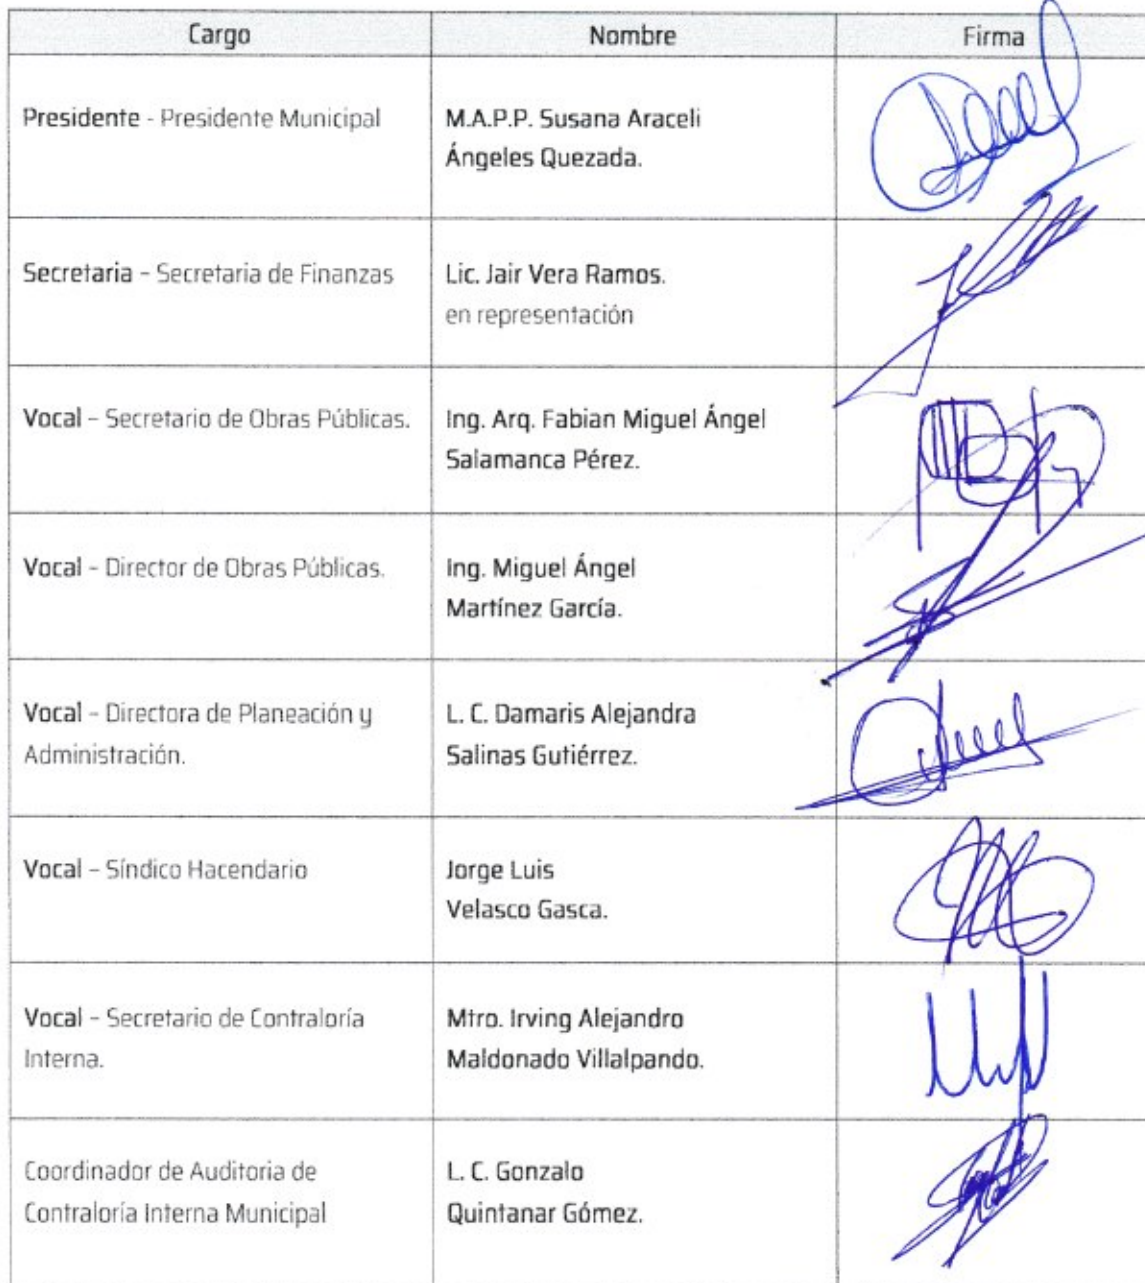 Cargo Nombre Firma
Presidente - Presidente Municipal M.A.P.P. Susana Araceli
Ángeles Quezada.
Secretaria – Secretaria de Finanzas Lic. Jair Vera Ramos.
en representación
Vocal – Secretario de Obras Públicas. Ing. Arq. Fabian Miguel Ángel
Salamanca Pérez.
Vocal – Director de Obras Públicas. Ing. Miguel Ángel
Martínez García.
Vocal – Directora de Planeación y L. C. Damaris Alejandra
Administración. Salinas Gutiérrez.
Vocal – Síndico Hacendario Jorge Luis
Velasco Gasca.
Vocal – Secretario de Contraloría Mtro. Irving Alejandro
Interna. Maldonado Villalpando.
Coordinador de Auditoria de L. C. Gonzalo
Contraloría Interna Municipal Quintanar Gómez.